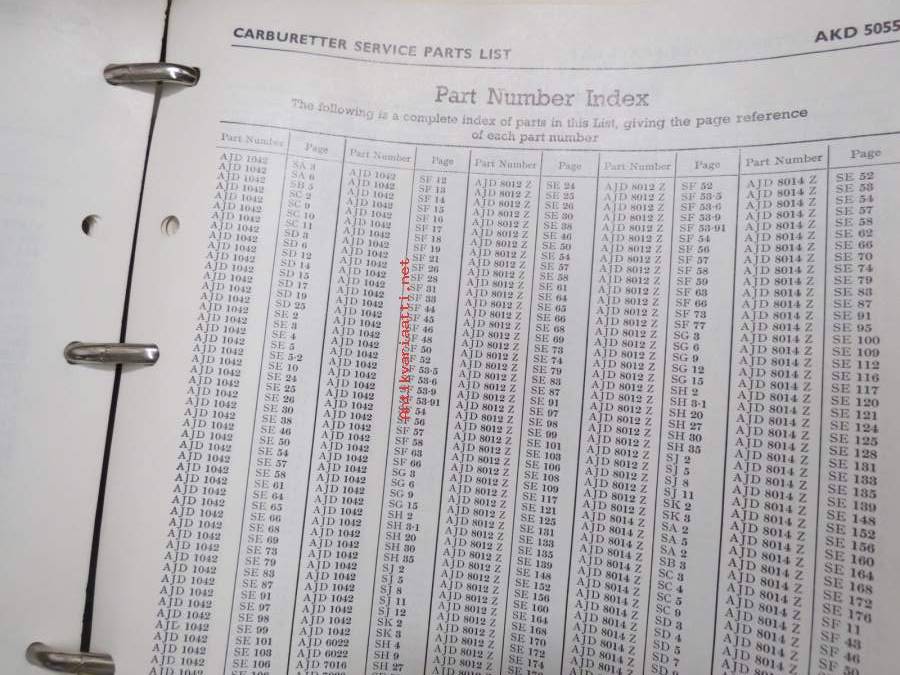 CARBURETTER SERVICE PARTS LIST
AKD 5055
Part Number Index
The following is a complete index of parts in this List, giving the page reference
of each part number
Part Number Page Part Number Page Part Number Page Part Number Page Part Number Page
AJD 1042 SA 3
AJD 1042 SA 6
AJD 1042 SB 5
AJD 1042 SC 2
AJD 1042 SC 9
AJD 1042 SC 10
AJD 1042 SC 11
AJD 1042 SD 3
AJD 1042 SD 6
AJD 1042 SD 12
AJD 1042 SD 14
AJD 1042 SD 15
AJD 1042 SD 17
AJD 1042 SD 19
AJD 1042 SD 25
AJD 1042 SE 2
AJD 1042 SE 3
AJD 1042 SE 4
AJD 1042 SE 5
AJD 1042 SE 5-2
AJD 1042 SE 10
AJD 1042 SE 24
AJD 1042 SE 25
AJD 1042 SE 26
AJD 1042 SE 30
AJD 1042 SE 38
AJD 1042 SE 46
AJD 1042 SE 50
AJD 1042 SE 54
AJD 1042 SE 57
AJD 1042 SE 58
AJD 1042 SE 61
AJD 1042 SE 64
AJD 1042 SE 65
AJD 1042 SE 66
AJD 1042 SE 68
AJD 1042 SE 69
AJD 1042 SE 73
AJD 1042 SE 79
AJD 1042 SE 83
AJD 1042 SE 87
AJD 1042 SE 91
AJD 1042 SE 97
AJD 1042 SE 98
AJD 1042 SE 99
AJD 1042 SE 101
AJD 1042 SE 103
AJD 1042 SE 106
AJD 1042 SF 12
AJD 1042 SF 13
AJD 1042 SF 14
AJD 1042 SF 15
AJD 1042 SF 16
AJD 1042 SF 17
AJD 1042 SF 18
AJD 1042 SF 19
AJD 1042 SF 21
AJD 1042 SF 26
AJD 1042 SF 28
AJD 1042 SF 31
AJD 1042 SF 33
AJD 1042 SF 44
AJD 1042 SF 45
AJD 1042 SF 46
AJD 1042 SF 48
AJD 1042 SF 50
AJD 1042 SF 52
AJD 1042 SF 53-5
AJD 1042 SF 53-6
AJD 1042 SF 53-9
AJD 1042 SF 53-91
AJD 1042 SF 54
AJD 1042 SF 56
AJD 1042 SF 57
AJD 1042 SF 58
AJD 1042 SF 63
AJD 1042 SF 66
AJD 1042 SG 3
AJD 1042 SG 6
AJD 1042 SG 9
AJD 1042 SG 15
AJD 1042 SH 2
AJD 1042 SH 3-1
AJD 1042 SH 20
AJD 1042 SH 30
AJD 1042 SH 35
AJD 1042 SJ 2
AJD 1042 SJ 5
AJD 1042 SJ 8
AJD 1042 SJ 11
AJD 1042 SJ 12
AJD 1042 SK 2
AJD 1042 SK 3
AJD 6022 SH 4
AJD 6022 SH 9
AJD 7016 SH 27
AJD 8012 Z SE 24
AJD 8012 Z SE 25
AJD 8012 Z SE 26
AJD 8012 Z SE 30
AJD 8012 Z SE 38
AJD 8012 Z SE 46
AJD 8012 Z SE 50
AJD 8012 Z SE 54
AJD 8012 Z SE 57
AJD 8012 Z SE 58
AJD 8012 Z SE 61
AJD 8012 Z SE 64
AJD 8012 Z SE 65
AJD 8012 Z SE 66
AJD 8012 Z SE 68
AJD 8012 Z SE 69
AJD 8012 Z SE 73
AJD 8012 Z SE 74
AJD 8012 Z SE 79
AJD 8012 Z SE 83
AJD 8012 Z SE 87
AJD 8012 Z SE 91
AJD 8012 Z SE 97
AJD 8012 Z SE 98
AJD 8012 Z SE 99
AJD 8012 Z SE 101
AJD 8012 Z SE 103
AJD 8012 Z SE 106
AJD 8012 Z SE 108
AJD 8012 Z SE 109
AJD 8012 Z SE 117
AJD 8012 Z SE 121
AJD 8012 Z SE 125
AJD 8012 Z SE 131
AJD 8012 Z SE 133
AJD 8012 Z SE 135
AJD 8012 Z SE 139
AJD 8012 Z SE 148
AJD 8012 Z SE 152
AJD 8012 Z SE 156
AJD 8012 Z SE 160
AJD 8012 Z SE 164
AJD 8012 Z SE 168
AJD 8012 Z SE 170
AJD 8012 Z SE 172
AJD 8012 Z SE 174
AJD 8012 Z SF 52
AJD 8012 Z SF 53-5
AJD 8012 Z SF 53-6
AJD 8012 Z SF 53-9
AJD 8012 Z SF 53-91
AJD 8012 Z SF 54
AJD 8012 Z SF 56
AJD 8012 Z SF 57
AJD 8012 Z SF 58
AJD 8012 Z SF 59
AJD 8012 Z SF 63
AJD 8012 Z SF 66
AJD 8012 Z SF 73
AJD 8012 Z SF 77
AJD 8012 Z SG 3
AJD 8012 Z SG 6
AJD 8012 Z SG 9
AJD 8012 Z SG 12
AJD 8012 Z SG 15
AJD 8012 Z SH 2
AJD 8012 Z SH 3-1
AJD 8012 Z SH 20
AJD 8012 Z SH 27
AJD 8012 Z SH 30
AJD 8012 Z SH 35
AJD 8012 Z SJ 2
AJD 8012 Z SJ 5
AJD 8012 Z SJ 8
AJD 8012 Z SJ 11
AJD 8012 Z SK 2
AJD 8012 Z SK 3
AJD 8014 Z SA 2
AJD 8014 Z SA 5
AJD 8014 Z SA 2
AJD 8014 Z SB 3
AJD 8014 Z SC 3
AJD 8014 Z SC 4
AJD 8014 Z SC 5
AJD 8014 Z SC 9
AJD 8014 Z SD 3
AJD 8014 Z SD 4
AJD 8014 Z SD 5
AJD 8014 Z SD 7
AJD 8014 Z SE 52
AJD 8014 Z SE 53
AJD 8014 Z SE 54
AJD 8014 Z SE 57
AJD 8014 Z SE 58
AJD 8014 Z SE 62
AJD 8014 Z SE 66
AJD 8014 Z SE 70
AJD 8014 Z SE 74
AJD 8014 Z SE 79
AJD 8014 Z SE 83
AJD 8014 Z SE 87
AJD 8014 Z SE 91
AJD 8014 Z SE 95
AJD 8014 Z SE 100
AJD 8014 Z SE 109
AJD 8014 Z SE 112
AJD 8014 Z SE 116
AJD 8014 Z SE 117
AJD 8014 Z SE 120
AJD 8014 Z SE 121
AJD 8014 Z SE 124
AJD 8014 Z SE 125
AJD 8014 Z SE 128
AJD 8014 Z SE 131
AJD 8014 Z SE 133
AJD 8014 Z SE 135
AJD 8014 Z SE 139
AJD 8014 Z SE 148
AJD 8014 Z SE 152
AJD 8014 Z SE 156
AJD 8014 Z SE 160
AJD 8014 Z SE 164
AJD 8014 Z SE 168
AJD 8014 Z SE 172
AJD 8014 Z SE 176
AJD 8014 Z SF 11
AJD 8014 Z SF 43
AJD 8014 Z SF 46
AJD 8014 Z SF 50
antikvariaatti.net